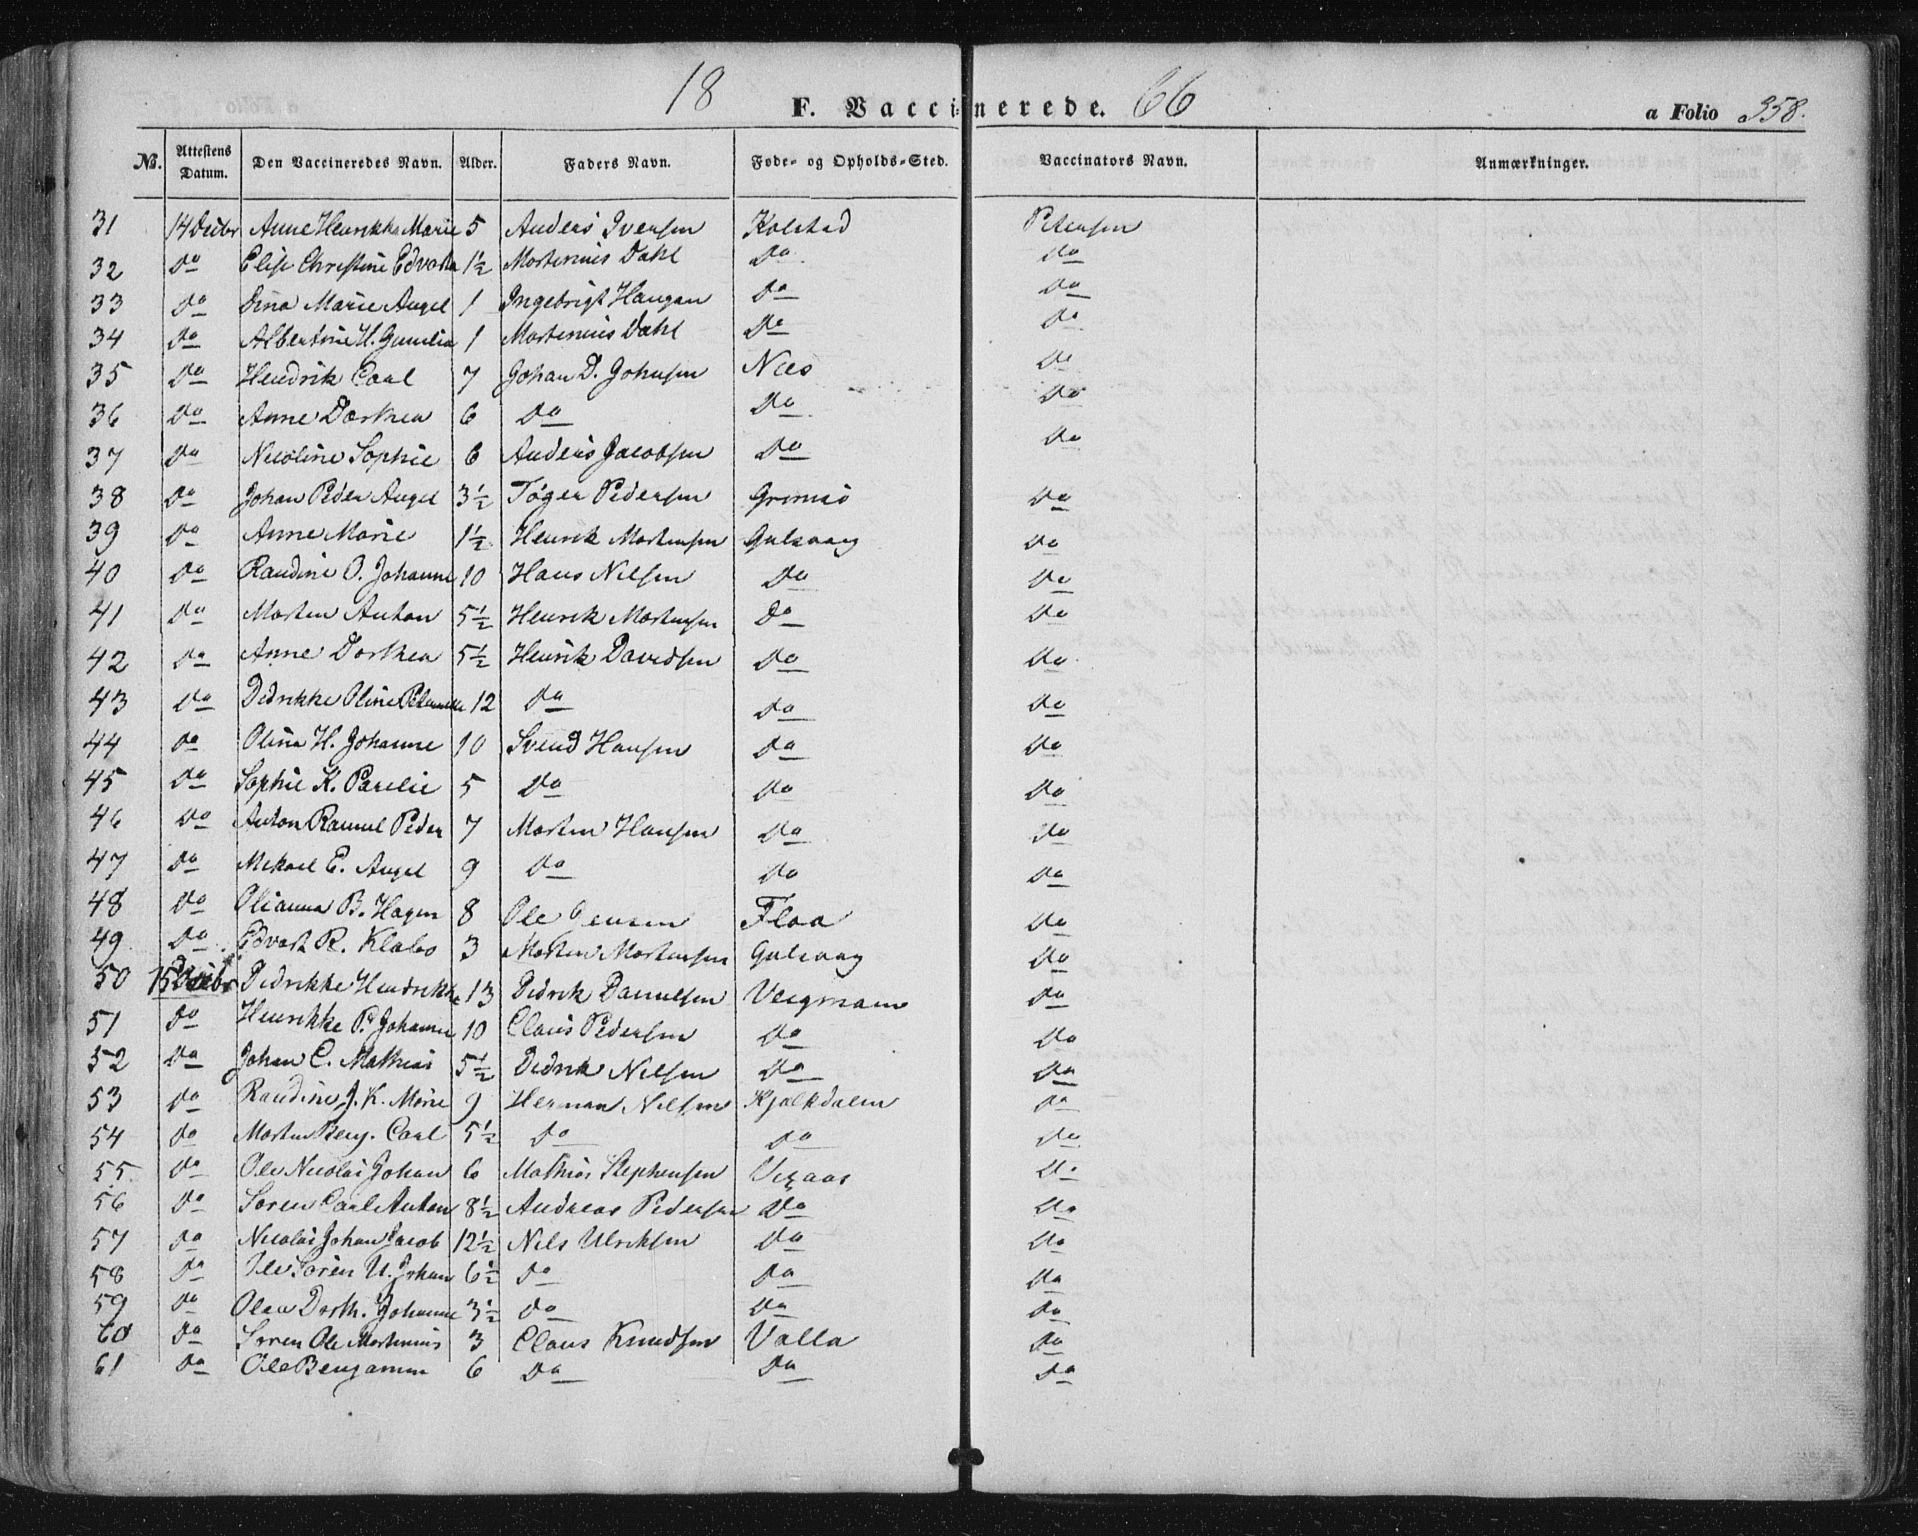 18 F. Vaccinerede. 66 a Folio 358.
No. Attestens Datum. Den Vaccineredes Navn. Alder. Faders Navn. Føde- og Opholds-Sted. Vaccinators Navn. Anmærkninger.
31 14 Decbr Anne Henrikke Marie 5 Anders Iversen Kolstad Petersen
32 Do Elise Christine Edvarda 1½ Mortenius Dahl Do Do
33 Do Dina Marie Angel 1 Ingebrigt Haugan Do Do
34 Do Albertine H. Gunelia 1 Mortenius Dahl Do Do
35 Do Hendrik Carl 7 Johan D. Johnsen Næs Do
36 Do Anne Dorthea 6 Do Do Do
37 Do Nicoline Sophie 6 Anders Jacobsen Do Do
38 Do Johan Peder Angel 3½ Tøger Pedersen Grimsø Do
39 Do Anne Marie 1½ Henrik Mortensen Gulsvaag Do
40 Do Randine O. Johanne 10 Hans Nilsen Do Do
41 Do Morten Anton 5½ Henrik Mortensen Do Do
42 Do Anne Dorthea 5½ Henrik Davidsen Do Do
43 Do Didrikke Oline 12 Do Do Do
44 Do Olina H. Johanne 10 Svend Hansen Do Do
45 Do Sophie K. Parelie 5 Do Do Do
46 Do Anton Peder 7 Morten Hansen Do Do
47 Do Mekael E. Angel 9 Do Do Do
48 Do Olianna B. Hagen 8 Ole Jensen Floa Do
49 Do Edvart R. Klabo 3 Morten Mortensen Gulsvaag Do
50 15 Decbr Didrikke Hendrikke 13 Didrik Danielsen Do
51 Do Henrikke P. Johanne 10 Claus Pedersen Do Do
52 Do Johan C. Mathias 5½ Didrik Nilsen Do Do
53 Do Randine J. K. Marie 9 Herman Nilsen Kjølkdalen Do
54 Do Morten Benj. Carl 5½ Do Do Do
55 Do Ole Nicolai Johan 6 Mathias Stephensen Vigaas Do
56 Do Søren Carl Anton 8½ Andreas Pedersen Do Do
57 Do Nicolai Johan Jacob 12½ Nils Ulriksen Do Do
58 Do Ole Søren U. Johan 6½ Do Do Do
59 Do Olea Dorth. Johanne 3½ Do Do Do
60 Do Søren Ole Mortenius 3 Claus Knudsen Valla Do
61 Do Ole Benjamin 6 Do Do Do